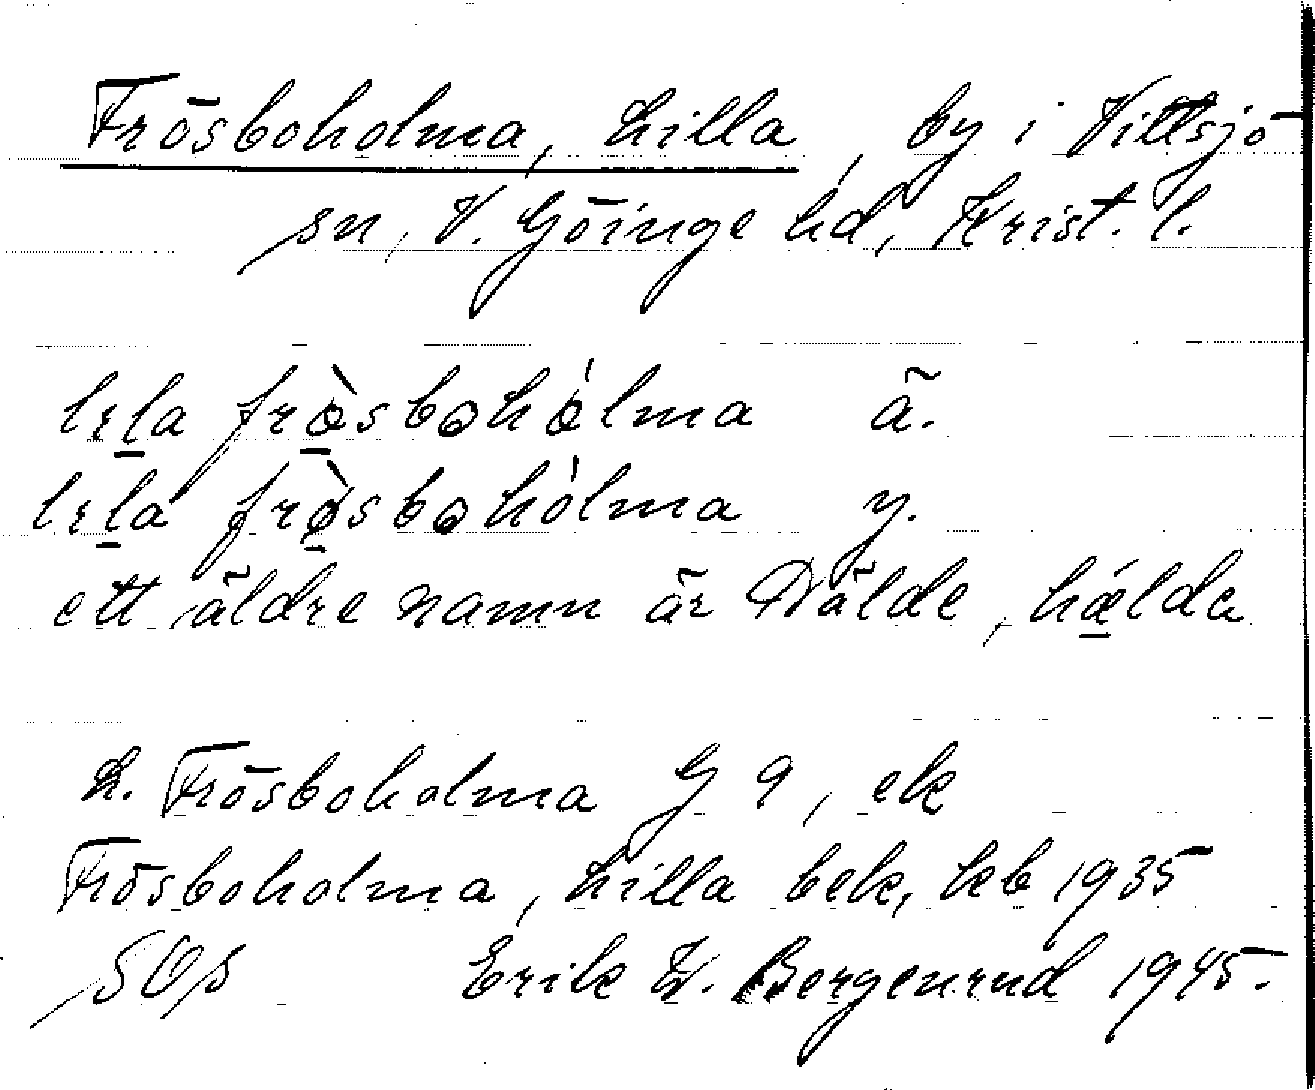 Frösboholma, Lilla, by i Vittsjö
sn, V. Göinge hd, Krist. l.
lɪla frø̀sbohólma ä.
lɪla frø̀sbohólma y.
ett äldre namn är Hälde, hǽlda
L. Frösboholma G 9, ek
Frösboholma, Lilla bek, kb 1935
SOS Erik W. Bergenrud 1945.